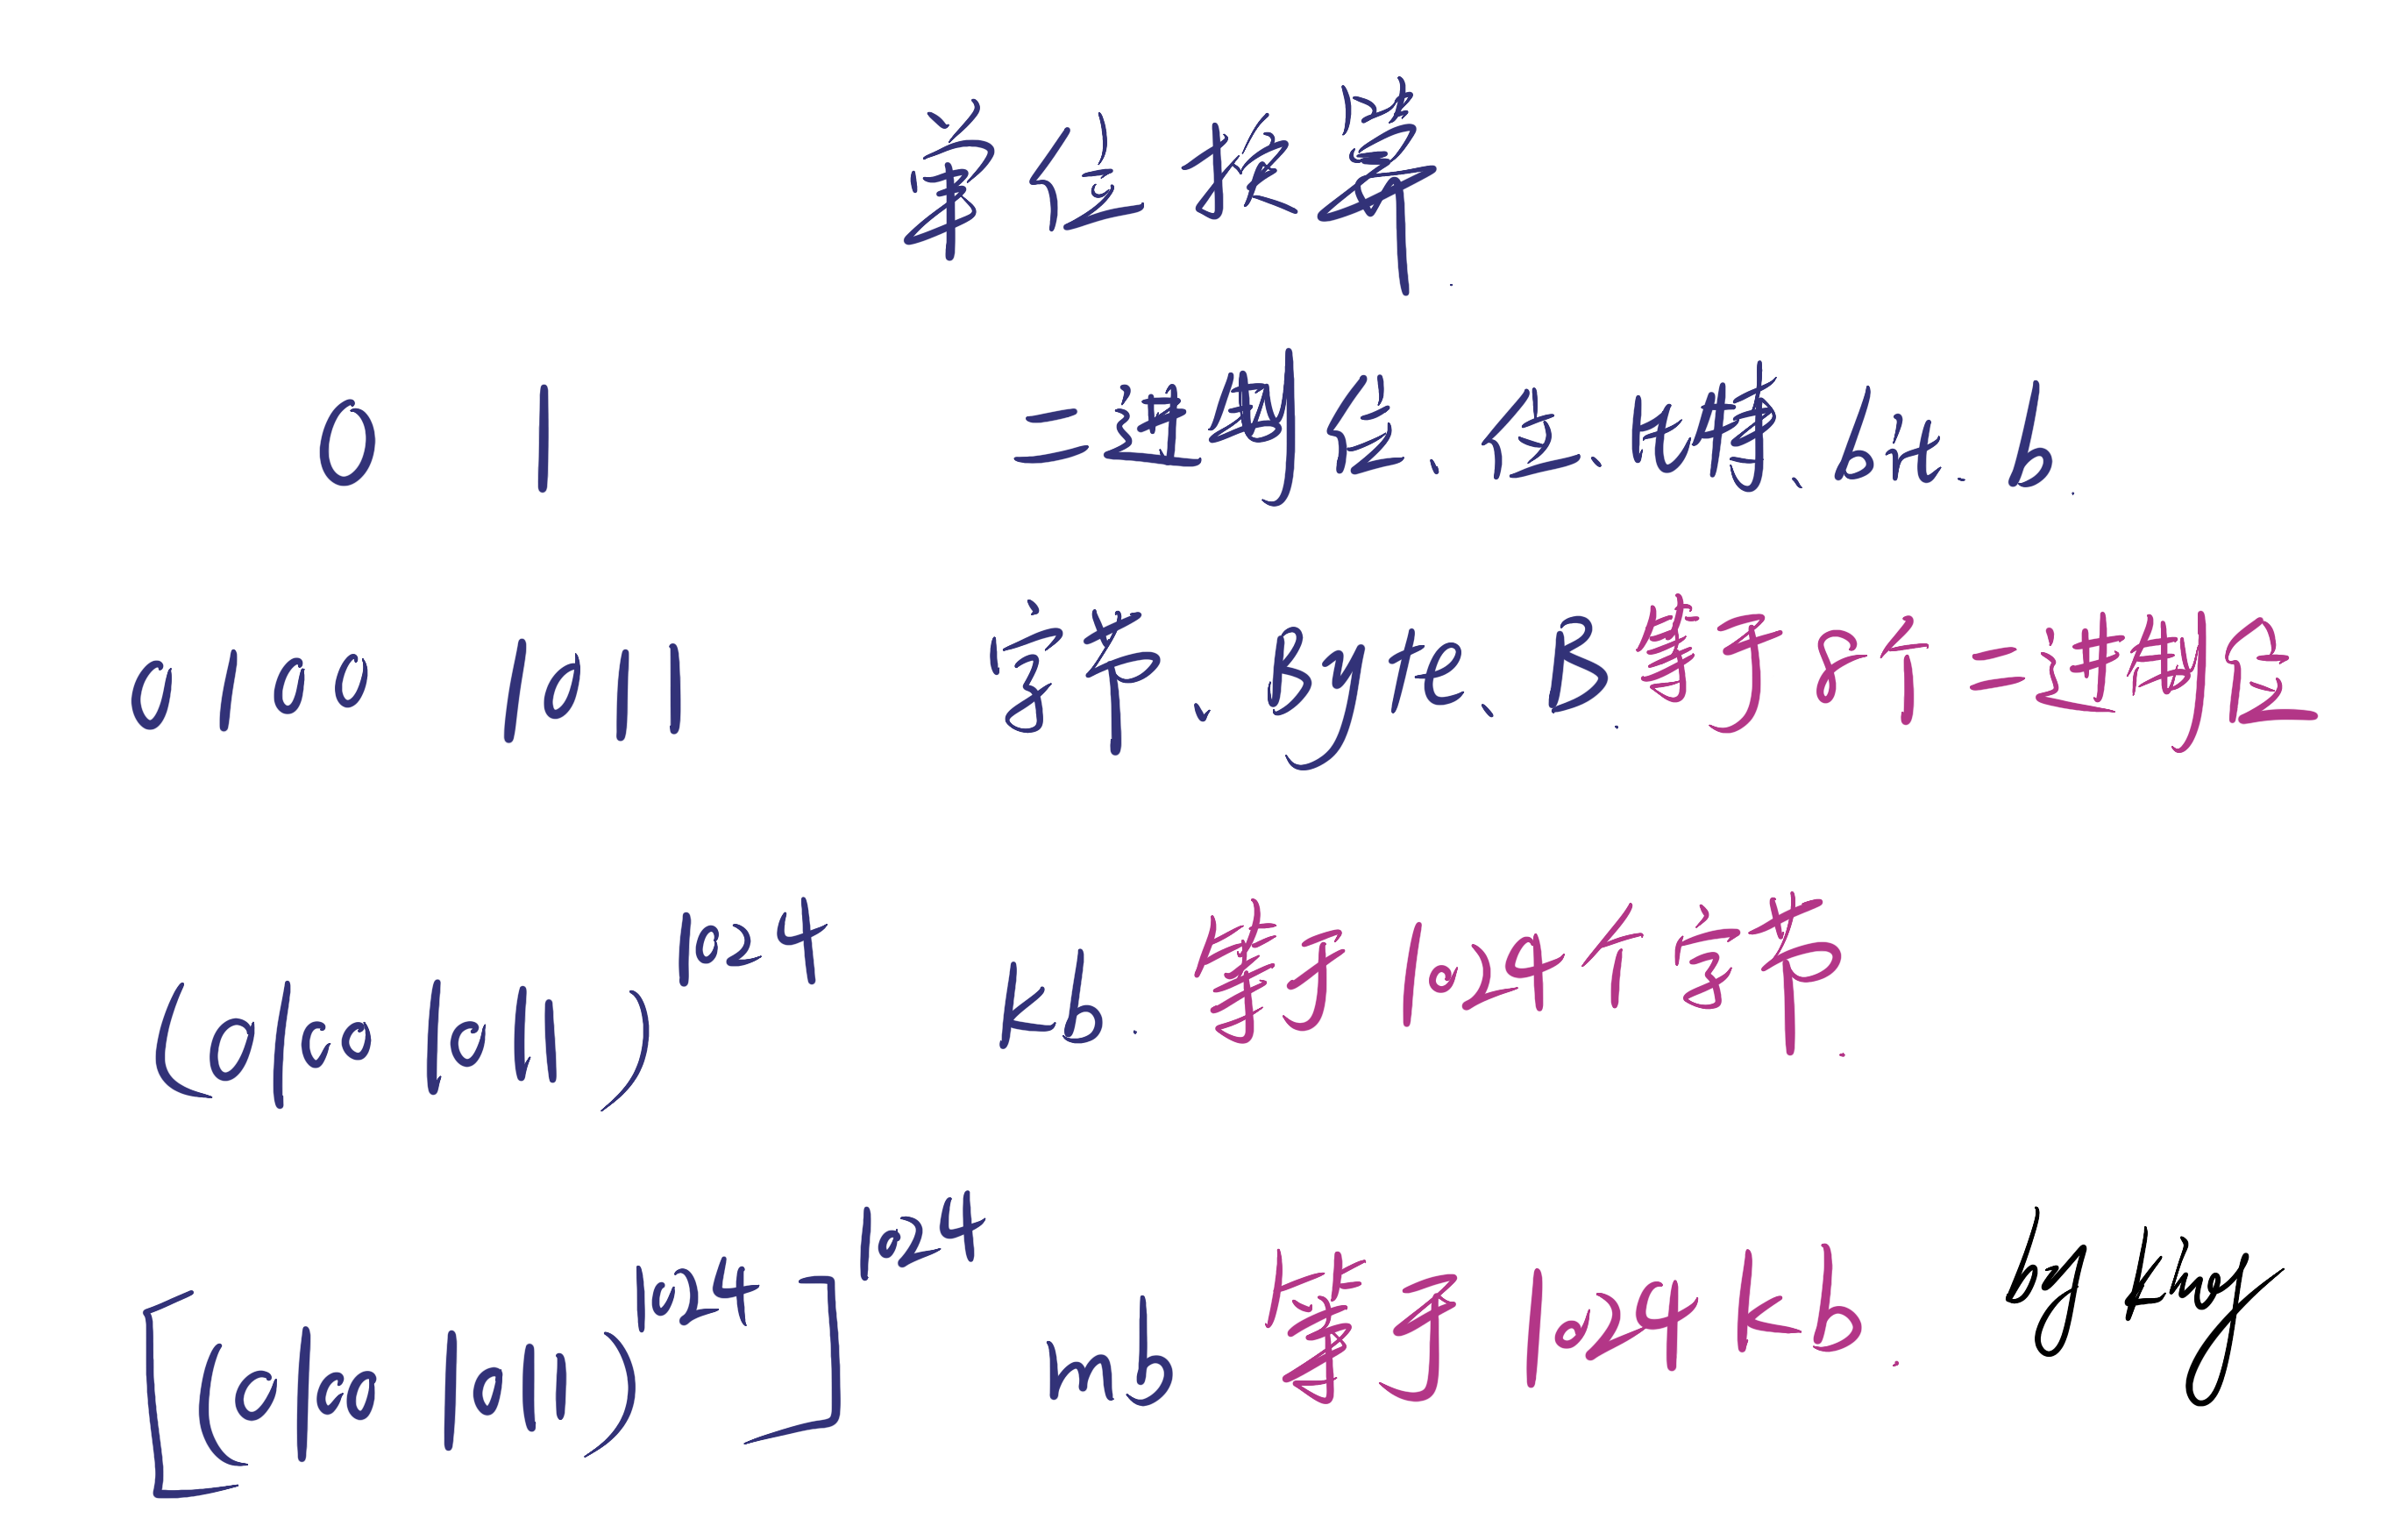 单位换算.
0 1 二进制位、位、比特、bit、b.
0100 1011 字节、Byte、B. 等于8个二进制位
(0100 1011)^1024 kb. 等于1024个字节.
[(0100 1011)^1024]^1024 mb 等于1024kb.
by king